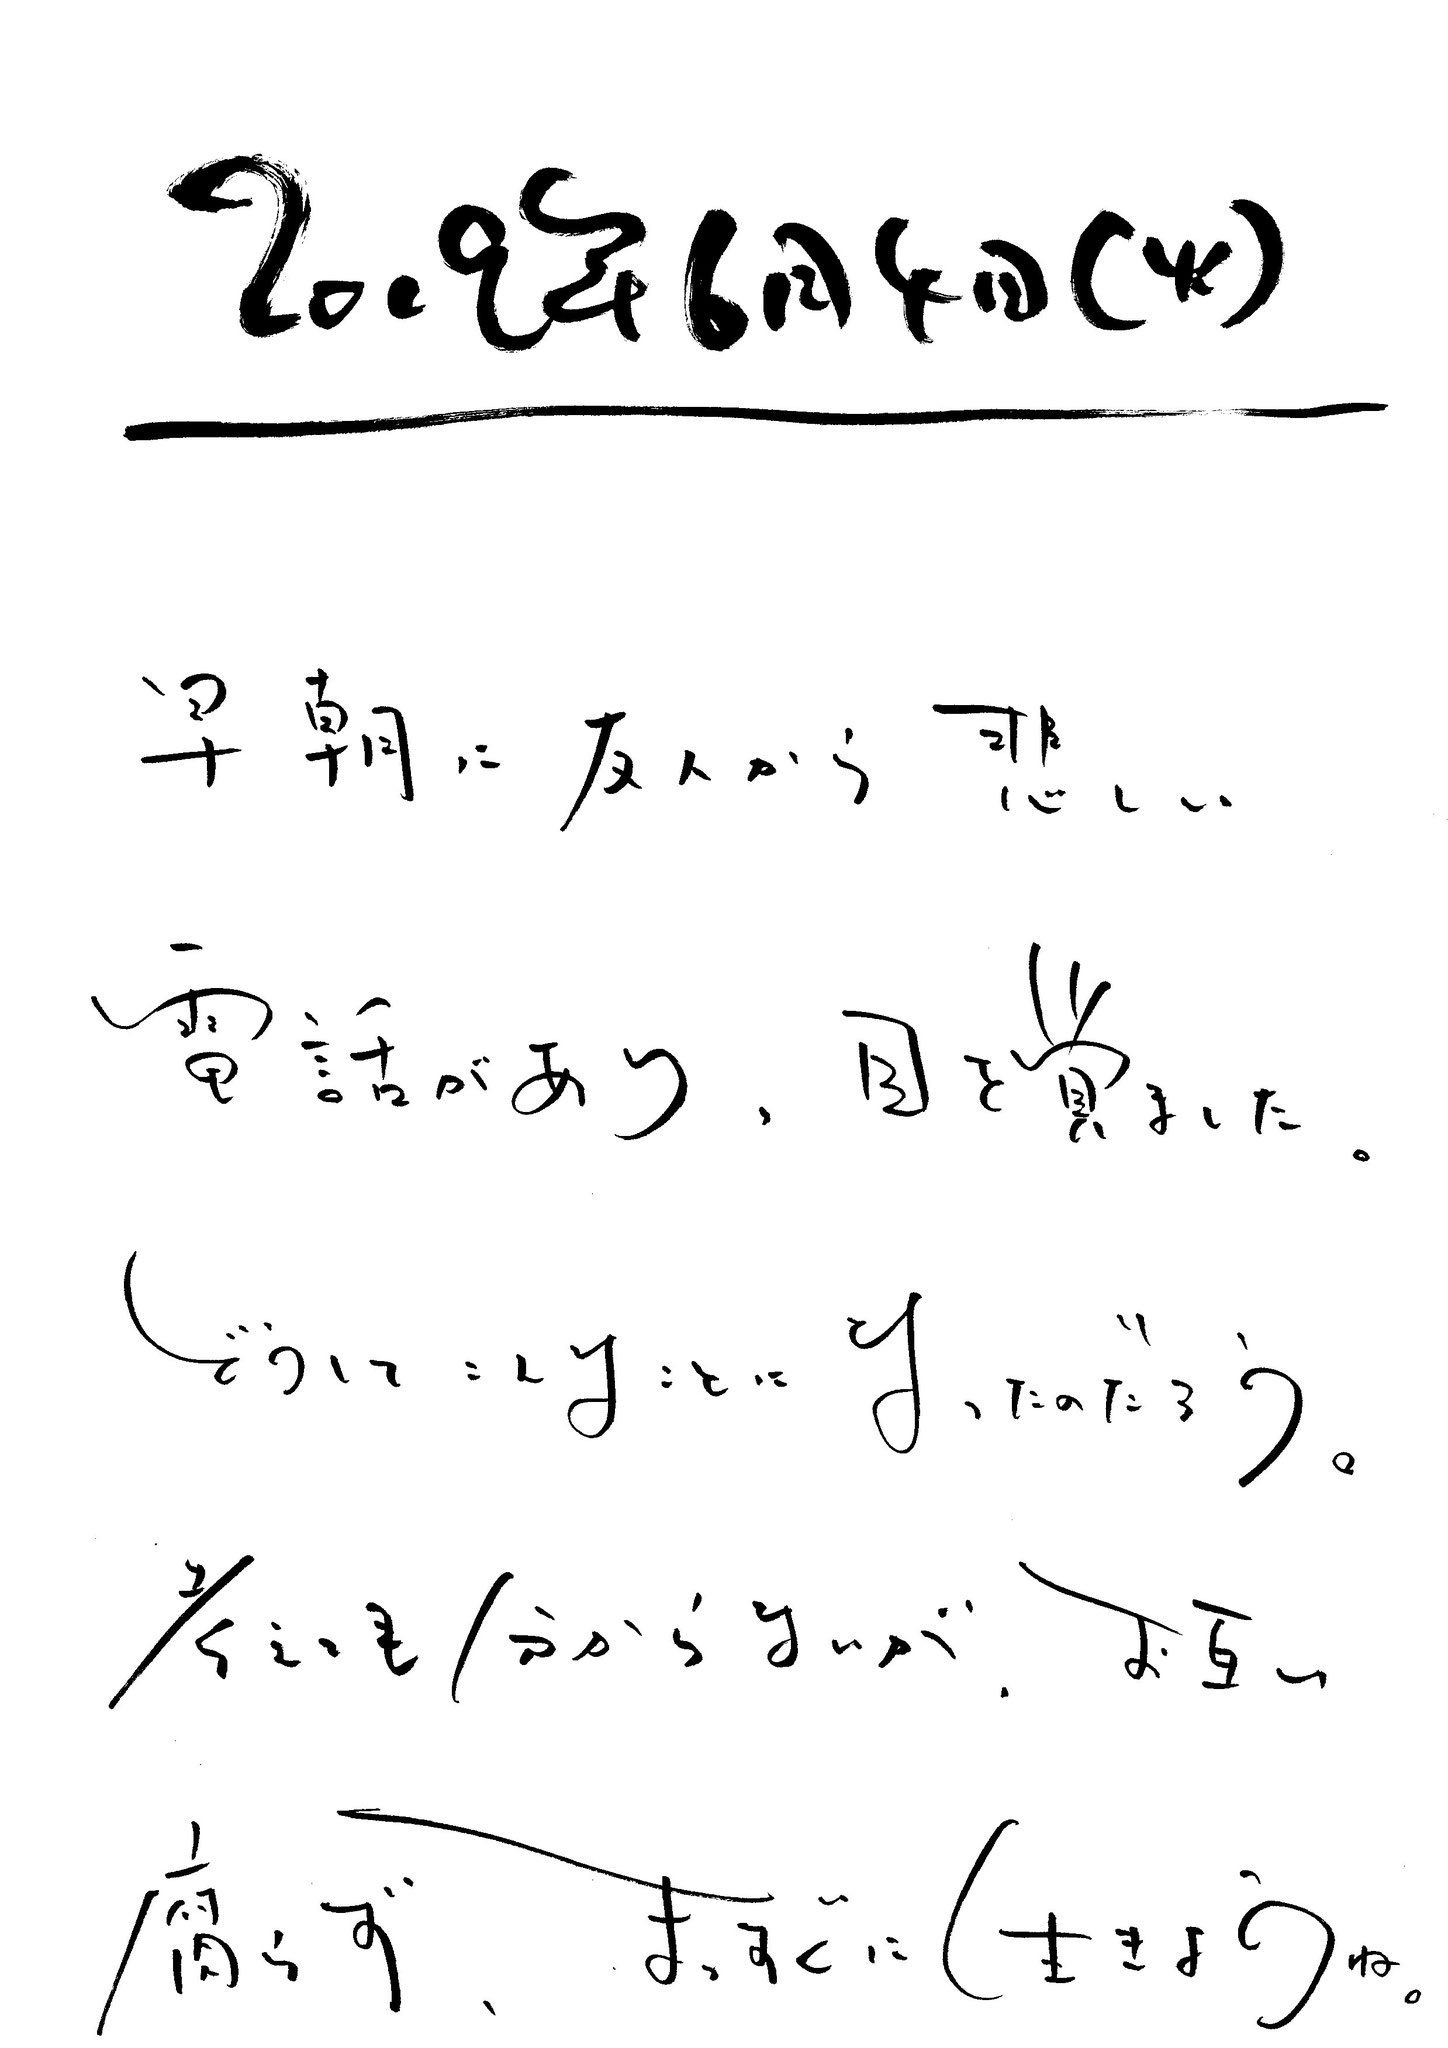 2009年6月4日(水)
早朝に友人から悲しい
電話があり、目を覚ました。
どうしてこんなことになったのだろう。
考えても分からないが、お互い
腐らず、まっすぐに生きようね。